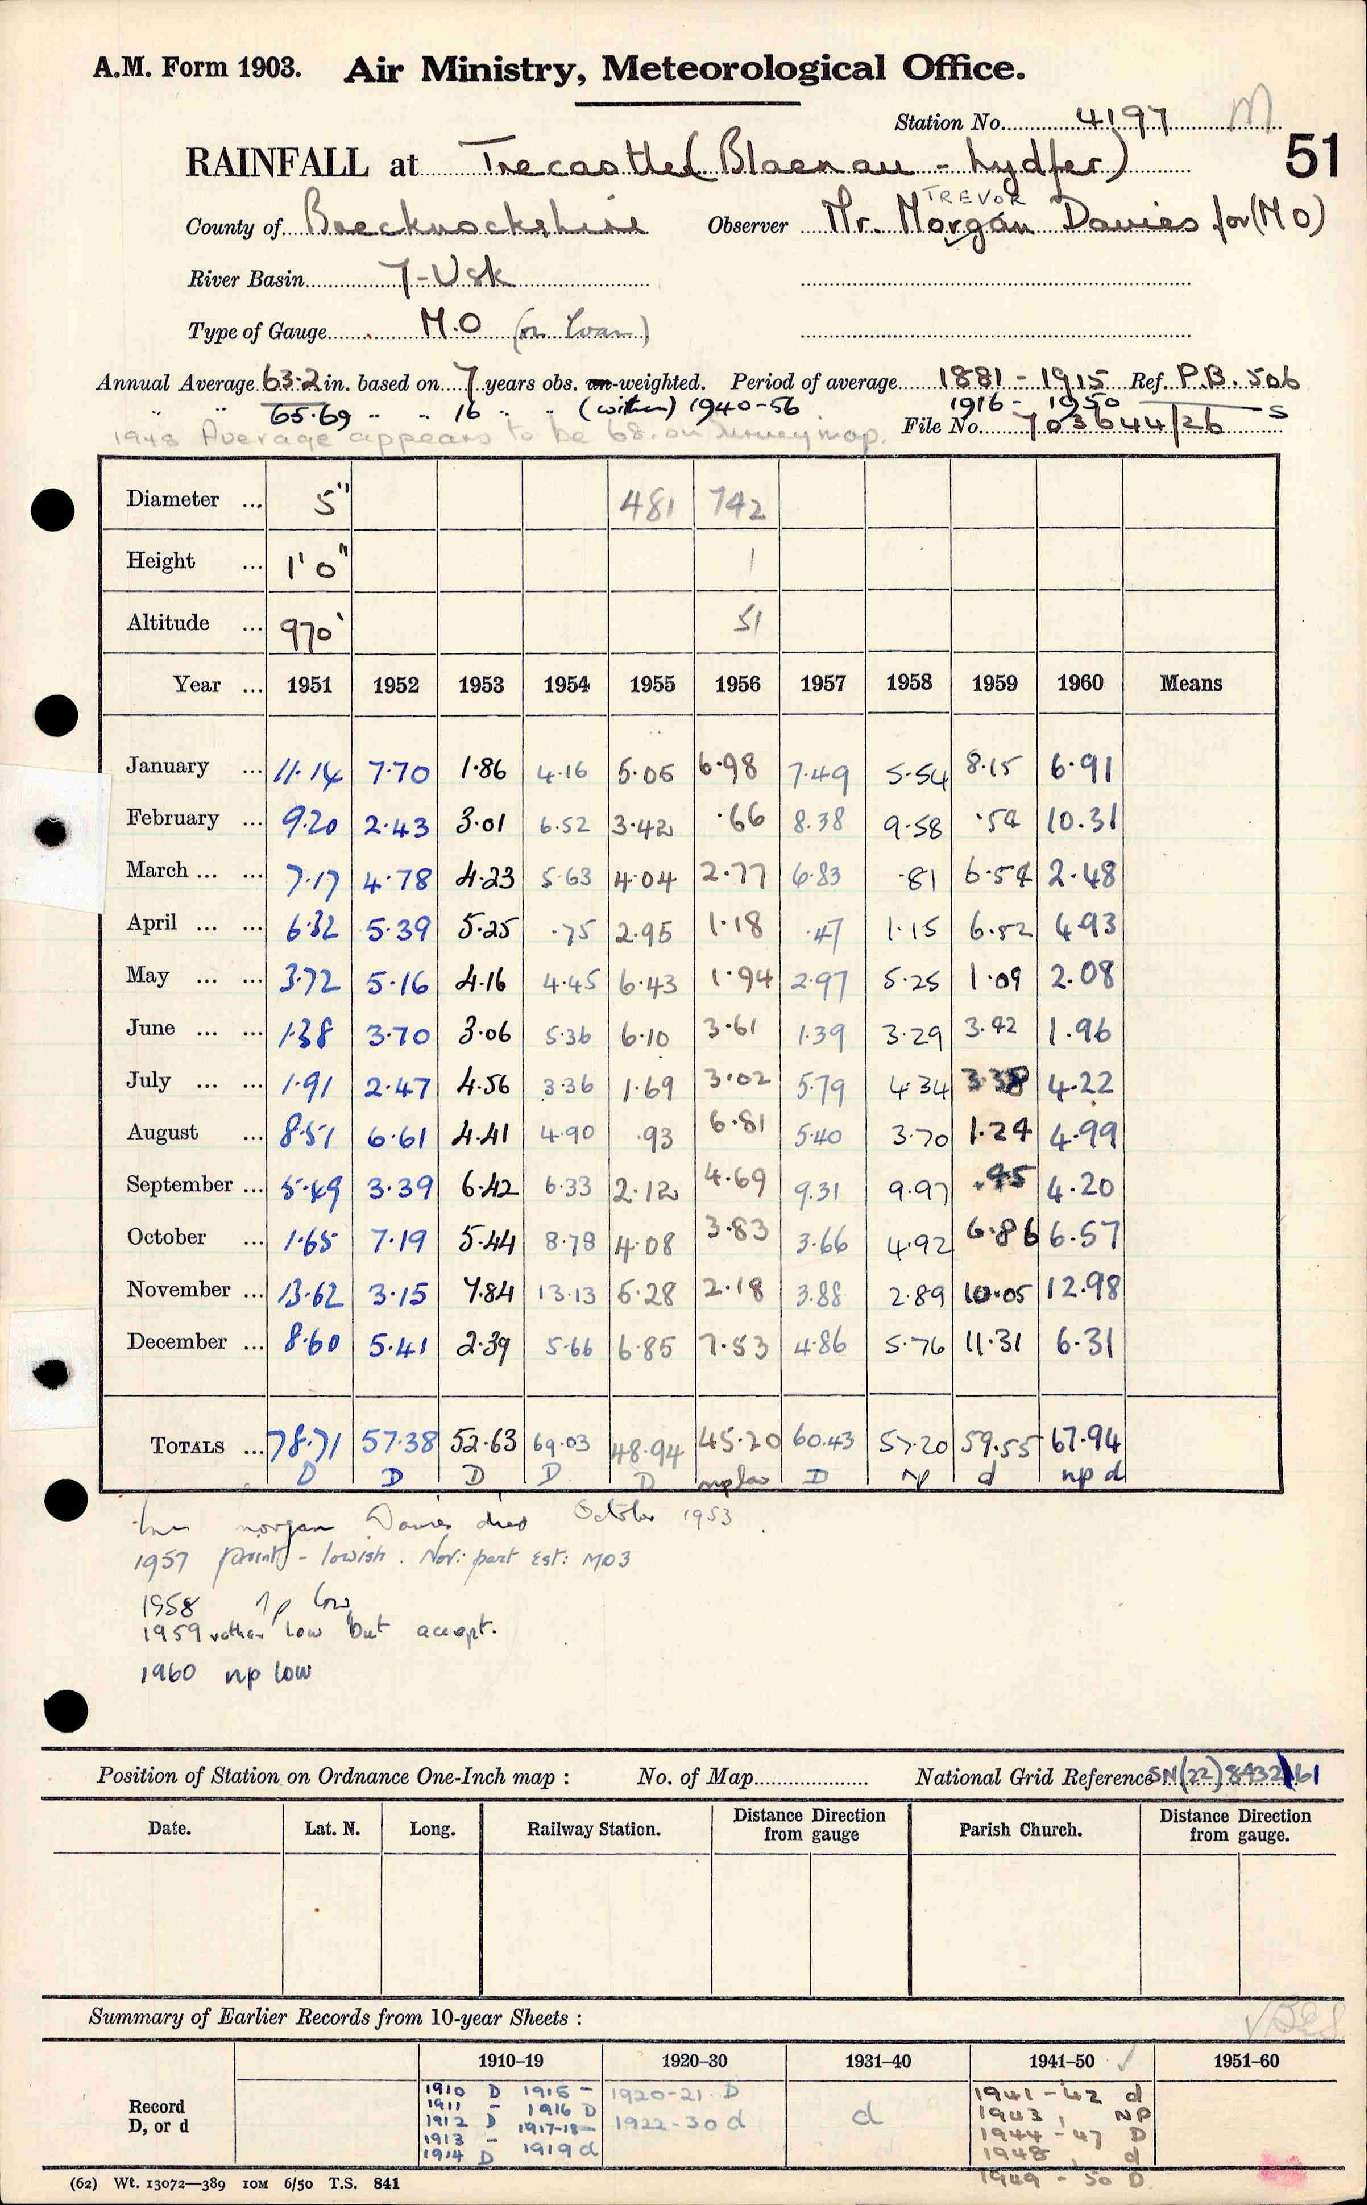 A.M. Form 1903. Air Ministry, Meteorological Office.
Station No. 4197 M
51
RAINFALL at Trecastle (Blaenau - hydfer)
TREVOR
County of Brecknockshire Observer Mr. Morgan Davies for (MO)
River Basin 7-Usk
Type of Gauge M.O (on loan)
Annual Average 63.2 in. based on 7 years obs. un-weighted. Period of average 1881 - 1915 Ref. P.B. 506
" " 65.69 " " 16 " " (within) 1940-56 1916 - 1950 S
1948 Average appears to be 68. on Survey map. File No. 703644/26
Diameter ... 5" 481 742
Height ... 1' 0" 1
Altitude ... 970' 51
Year ... 1951 1952 1953 1954 1955 1956 1957 1958 1959 1960 Means
January ... 11.14 7.70 1.86 4.16 5.05 6.98 7.49 5.54 8.15 6.91
February ... 9.20 2.43 3.01 6.52 3.42 .66 8.38 9.58 .54 10.31
March ... ... 7.17 4.78 4.23 5.63 4.04 2.77 6.83 .81 6.54 2.48
April ... ... 6.32 5.39 5.25 .75 2.95 1.18 .47 1.15 6.52 4.93
May ... ... 3.72 5.16 4.16 4.45 6.43 1.94 2.97 5.25 1.09 2.08
June ... ... 1.38 3.70 3.06 5.36 6.10 3.61 1.39 3.29 3.42 1.96
July ... ... 1.91 2.47 4.56 3.36 1.69 3.02 5.79 4.34 3.38 4.22
August ... 8.51 6.61 4.41 4.90 .93 6.81 5.40 3.70 1.24 4.99
September ... 5.49 3.39 6.42 6.33 2.12 4.69 9.31 9.97 .45 4.20
October ... 1.65 7.19 5.44 8.78 4.08 3.83 3.66 4.92 6.86 6.57
November ... 13.62 3.15 7.84 13.13 5.28 2.18 3.88 2.89 10.05 12.98
December ... 8.60 5.41 2.39 5.66 6.85 7.53 4.86 5.76 11.31 6.31
TOTALS ... 78.71 57.38 52.63 69.03 48.94 45.20 60.43 57.20 59.55 67.94
D D D D D np low D np d np d
Morgan Davies died October 1953.
1957 - lowish. Nov: part Est: MO3
1958 np low
1959 rather low but accept.
1960 np low
Position of Station on Ordnance One-Inch map : No. of Map National Grid Reference SN(22)8432161
Date. Lat. N. Long. Railway Station. Distance Direction from gauge Parish Church. Distance Direction from gauge.
Summary of Earlier Records from 10-year Sheets :
1910–19 1920–30 1931–40 1941–50 ✓ 1951–60
Record D, or d
1910 D 1915 - 1920-21 D d 1941-42 d
1911 - 1916 D 1922-30 d 1943, NP
1912 D 1917-18 - 1944-47 D
1913 - 1919 d 1948 d
1914 D 1949 - 50 D
(62) Wt. 13072—389 10M 6/50 T.S. 841